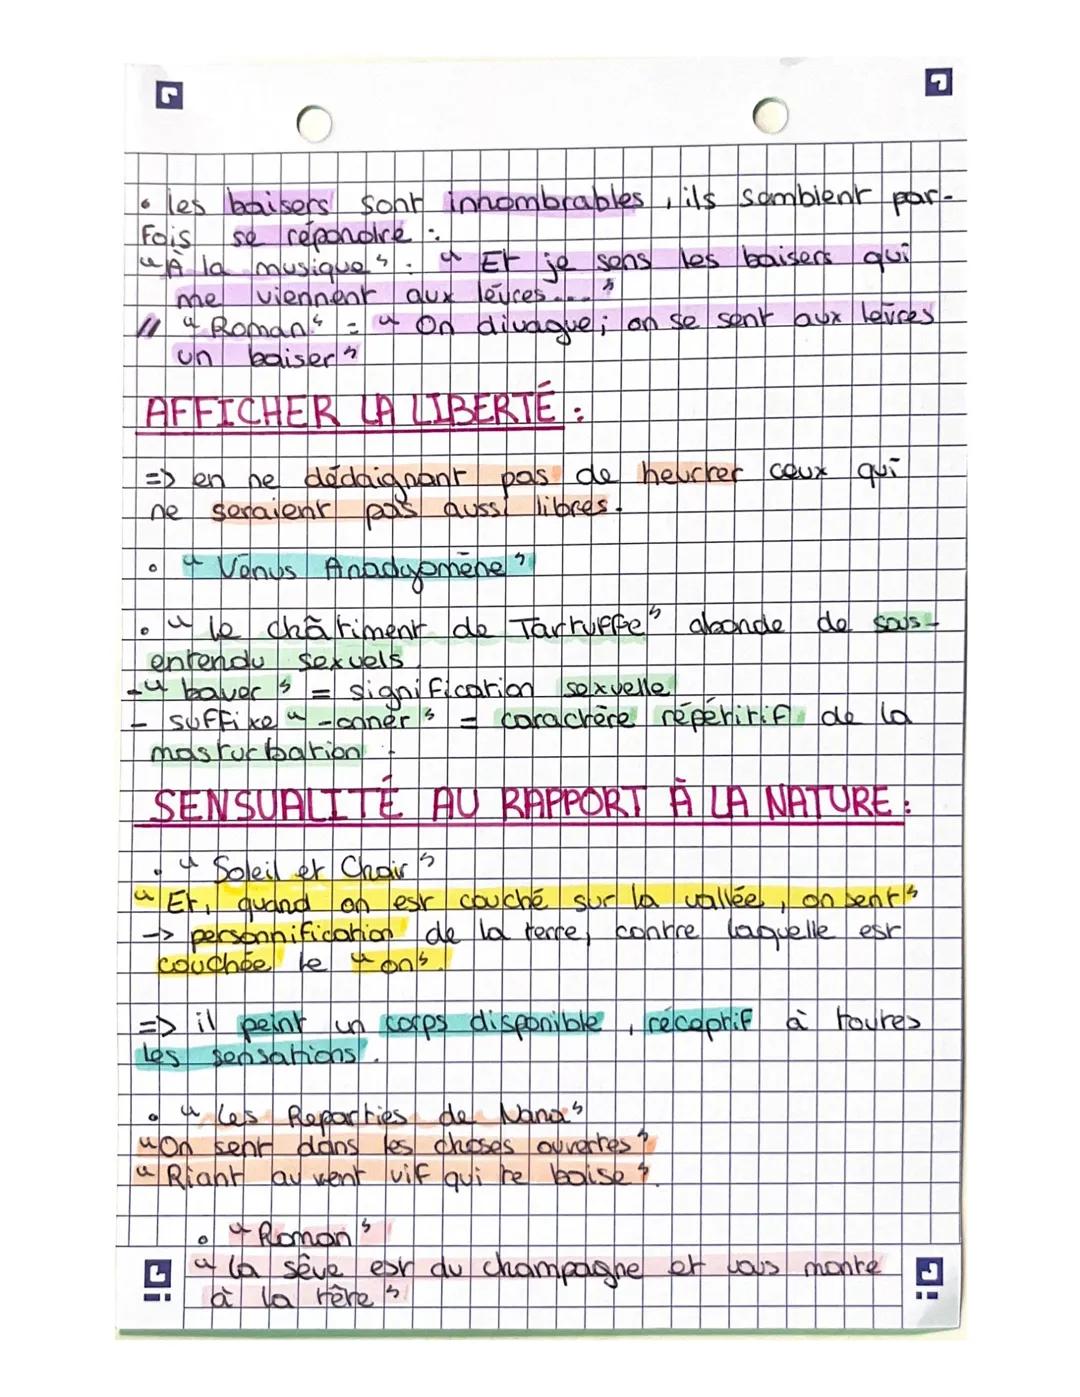 • les baisers sont innombrables, ils semblent par-
fois se répondre :
"À la musique" : "Et je sens les baisers qui
me viennent aux lèvres..."
// "Roman" = "On divague ; on se sent aux lèvres
un baiser"
AFFICHER LA LIBERTÉ :
=> en ne dédaignant pas de heurter ceux qui
ne seraient pas aussi libres.
• "Vénus Anadyomène"
• "le châtiment de Tartuffe" abonde de sous-
entendu sexuels
- "baver" = signification sexuelle
- suffixe "-onner" = caractère répétitif de la
masturbation.
SENSUALITÉ AU RAPPORT À LA NATURE :
• "Soleil et Chair"
"Et, quand on est couché sur la vallée, on sent"
-> personnification de la terre, contre laquelle est
couchée le "on".
=> il peint un corps disponible, réceptif à toutes
les sensations.
• "Les Reparties de Nana"
"On sent dans les choses ouvertes"
"Riant au vent vif qui te baise".
• "Roman"
"la sève est du champagne et vous monte
à la tête"